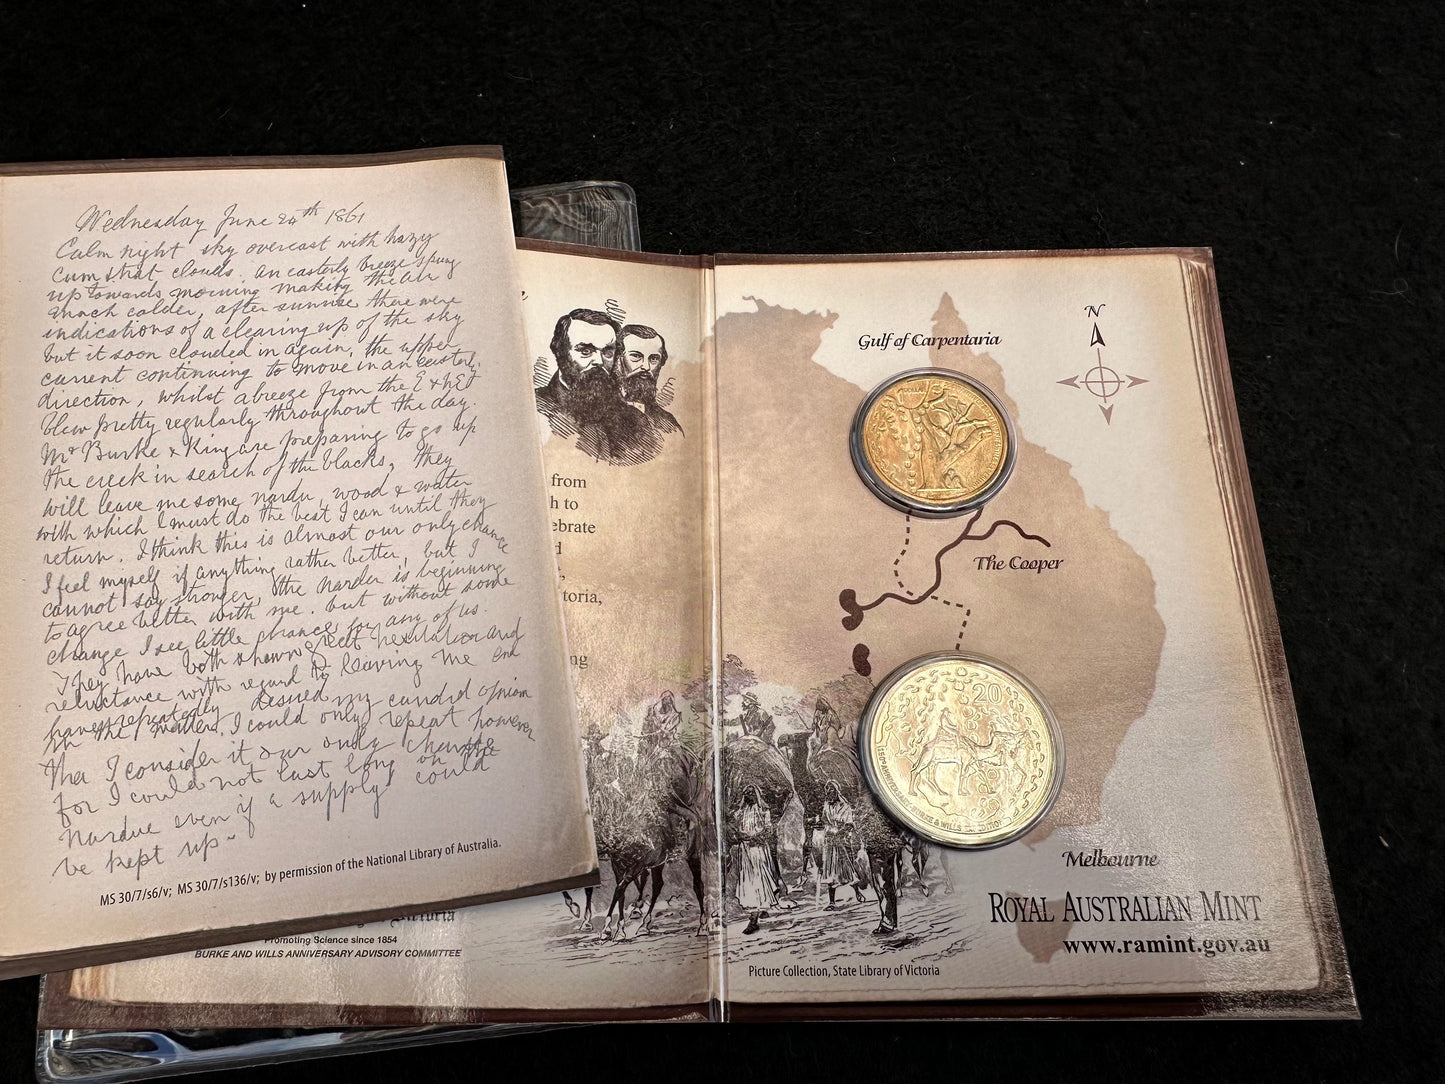 Wednesday June 24th 1861
Calm night sky overcast with hazy
Cum strat clouds. An easterly breeze sprung
up towards morning making the air
much colder, after sunrise there were
indications of a clearing up of the sky
but it soon clouded in again, the upper
current continuing to move in an easterly
direction, whilst a breeze from the E & NE
blew pretty regularly throughout the day.
Mr Burke & King are preparing to go up
the creek in search of the blacks, they
will leave me some nardu, wood & water
with which I must do the best I can until they
return. I think this is almost our only chance
I feel myself if anything rather better, but I
cannot say stronger, the nardu is beginning
to agree better with me. but without some
change I see little chance for any of us.
They have both shown great hesitation and
reluctance with regard to leaving me and
have repeatedly desired my candid opinion
in the matter. I could only repeat however
that I consider it our only chance
for I could not last long on the
Nardue even if a supply could
be kept up -
MS 30/7/s6/v; MS 30/7/s136/v; by permission of the National Library of Australia.
from
h to
ebrate
d
toria,
ng
Victoria
Promoting Science since 1854
BURKE AND WILLS ANNIVERSARY ADVISORY COMMITTEE
N
Gulf of Carpentaria
The Cooper
20
150TH ANNIVERSARY BURKE & WILLS EXPEDITION
Melbourne
ROYAL AUSTRALIAN MINT
www.ramint.gov.au
Picture Collection, State Library of Victoria